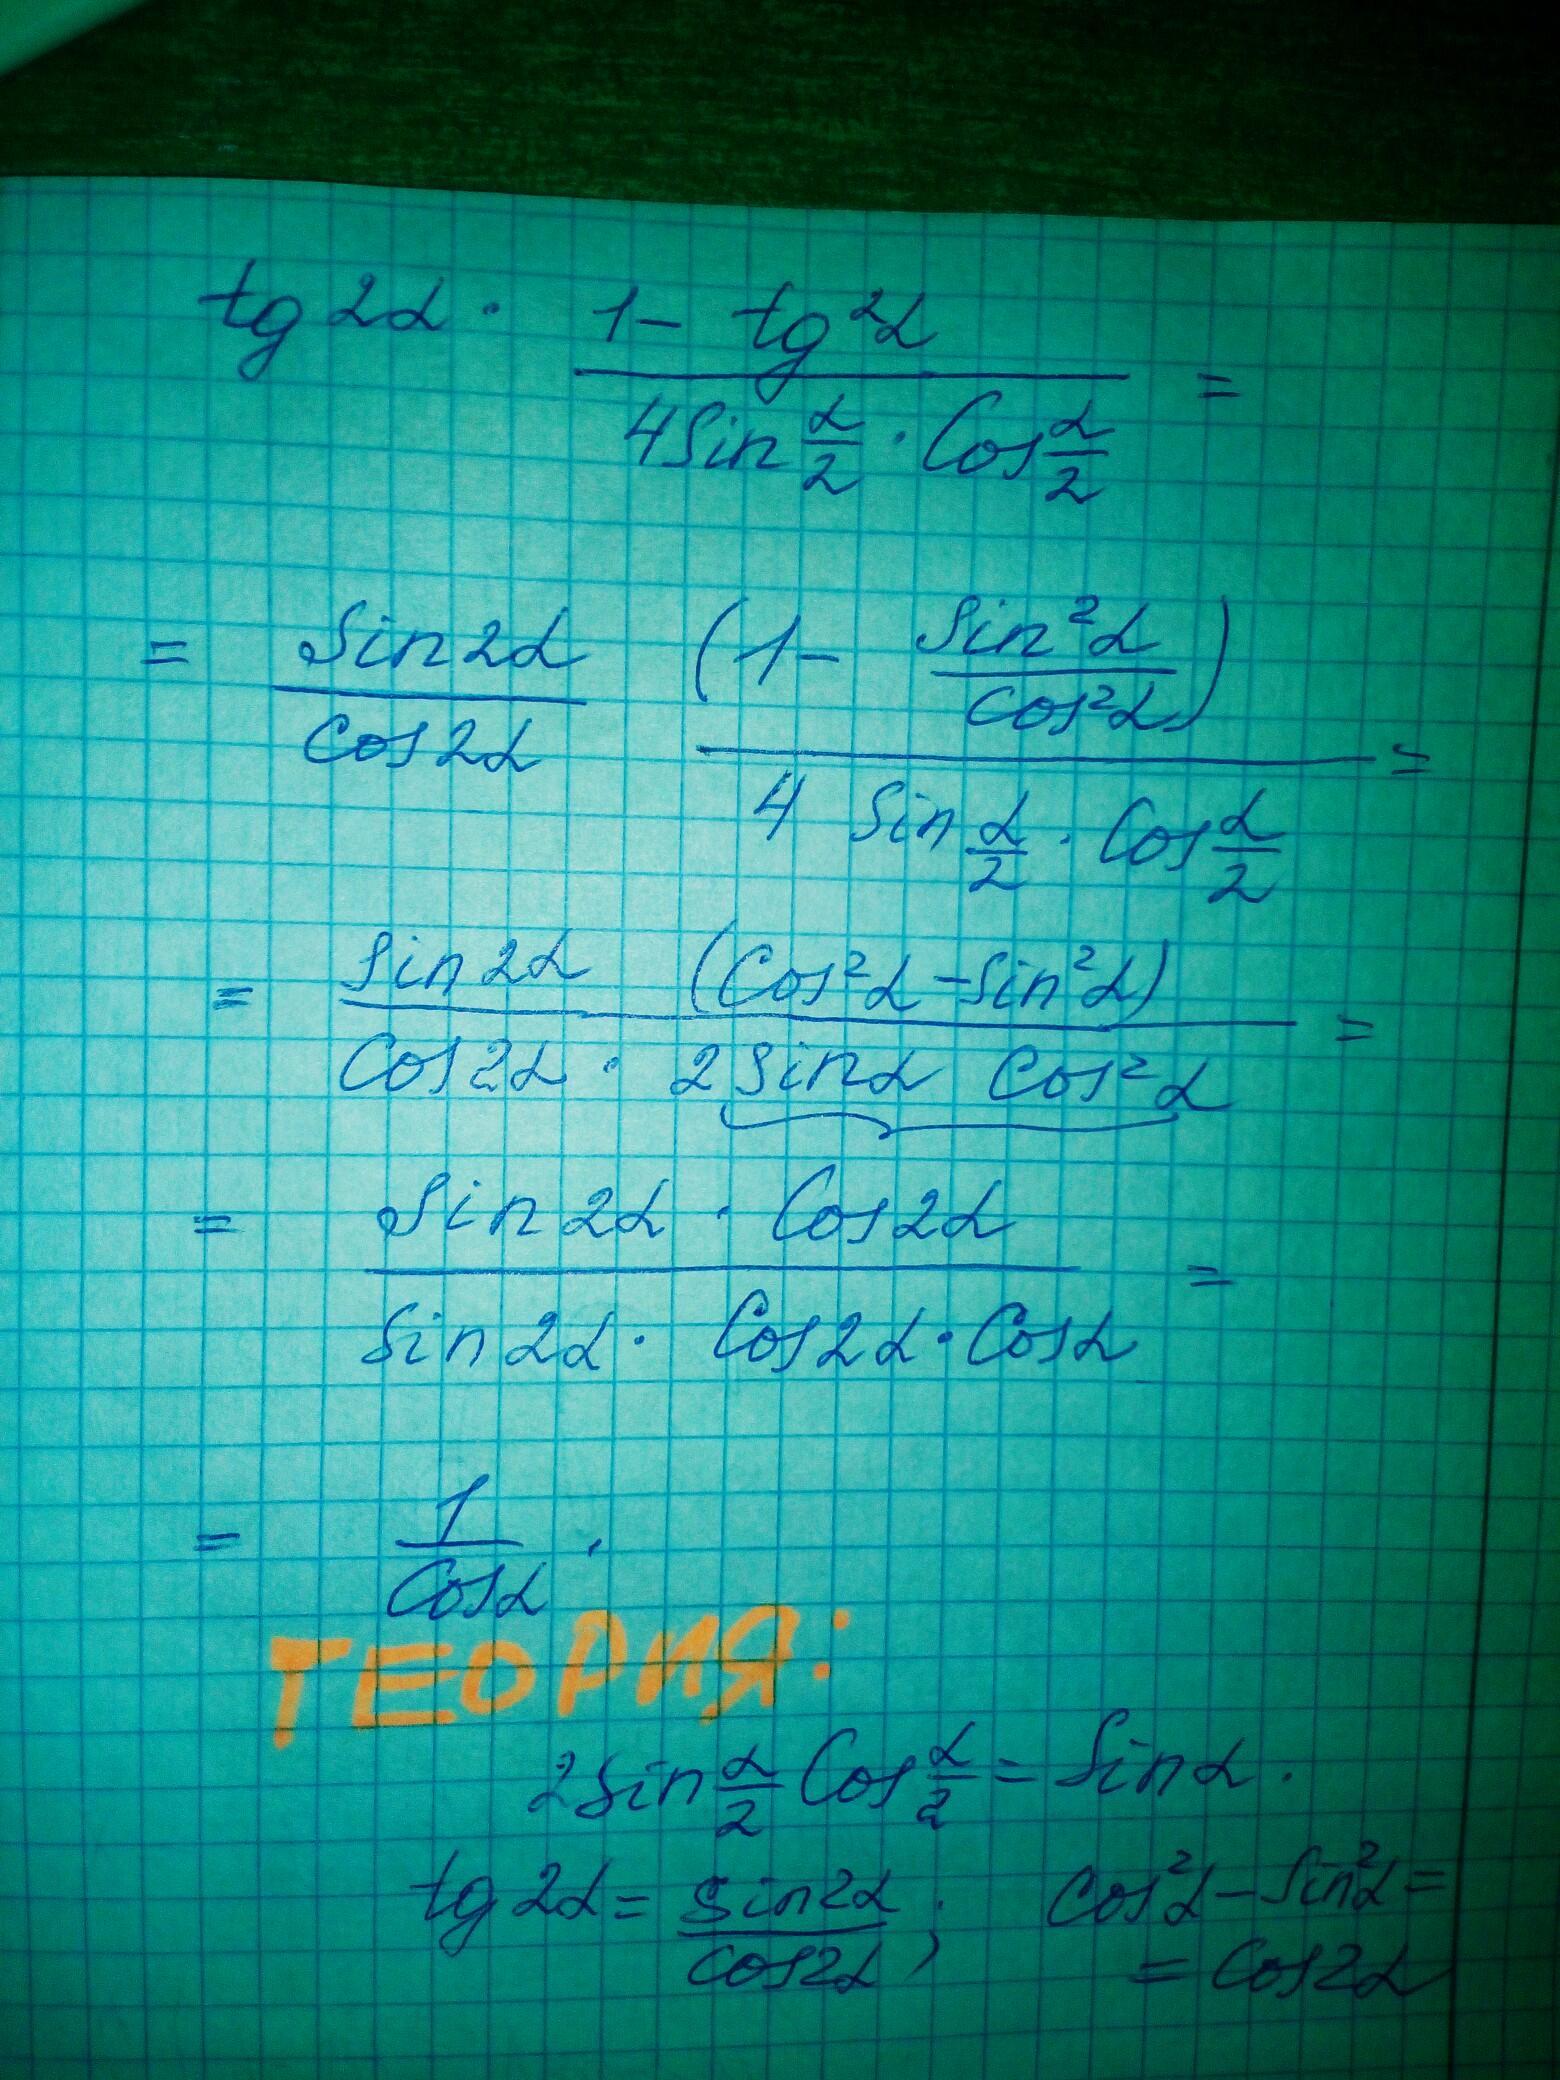 tg 2α · (1 - tg²α) / (4 Sin α/2 · Cos α/2) =
= Sin 2α / Cos 2α (1 - Sin²α / Cos²α) / (4 Sin α/2 · Cos α/2) =
= Sin 2α (Cos²α - Sin²α) / (Cos 2α · 2 Sin α Cos²α) =
= Sin 2α · Cos 2α / (Sin 2α · Cos 2α · Cos α) =
= 1 / Cos α .
ТЕОРИЯ:
2 Sin α/2 Cos α/2 = Sin α .
tg 2α = Sin 2α / Cos 2α ; Cos²α - Sin²α =
= Cos 2α